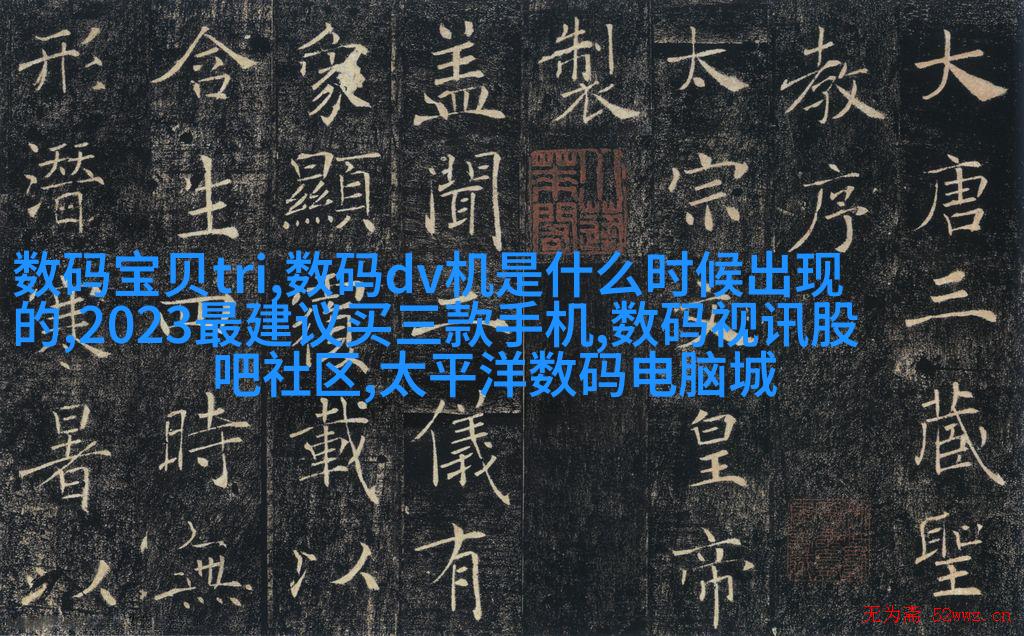 大唐三藏聖
教序
太宗文皇帝
製
盖聞二儀有
象顯覆載以
含生四時無
形潛寒暑以
数码宝贝tri,数码dv机是什么时候出现
的,2023最建议买三款手机,数码视讯股
吧社区,太平洋数码电脑城
无为斋 52wwz.cn